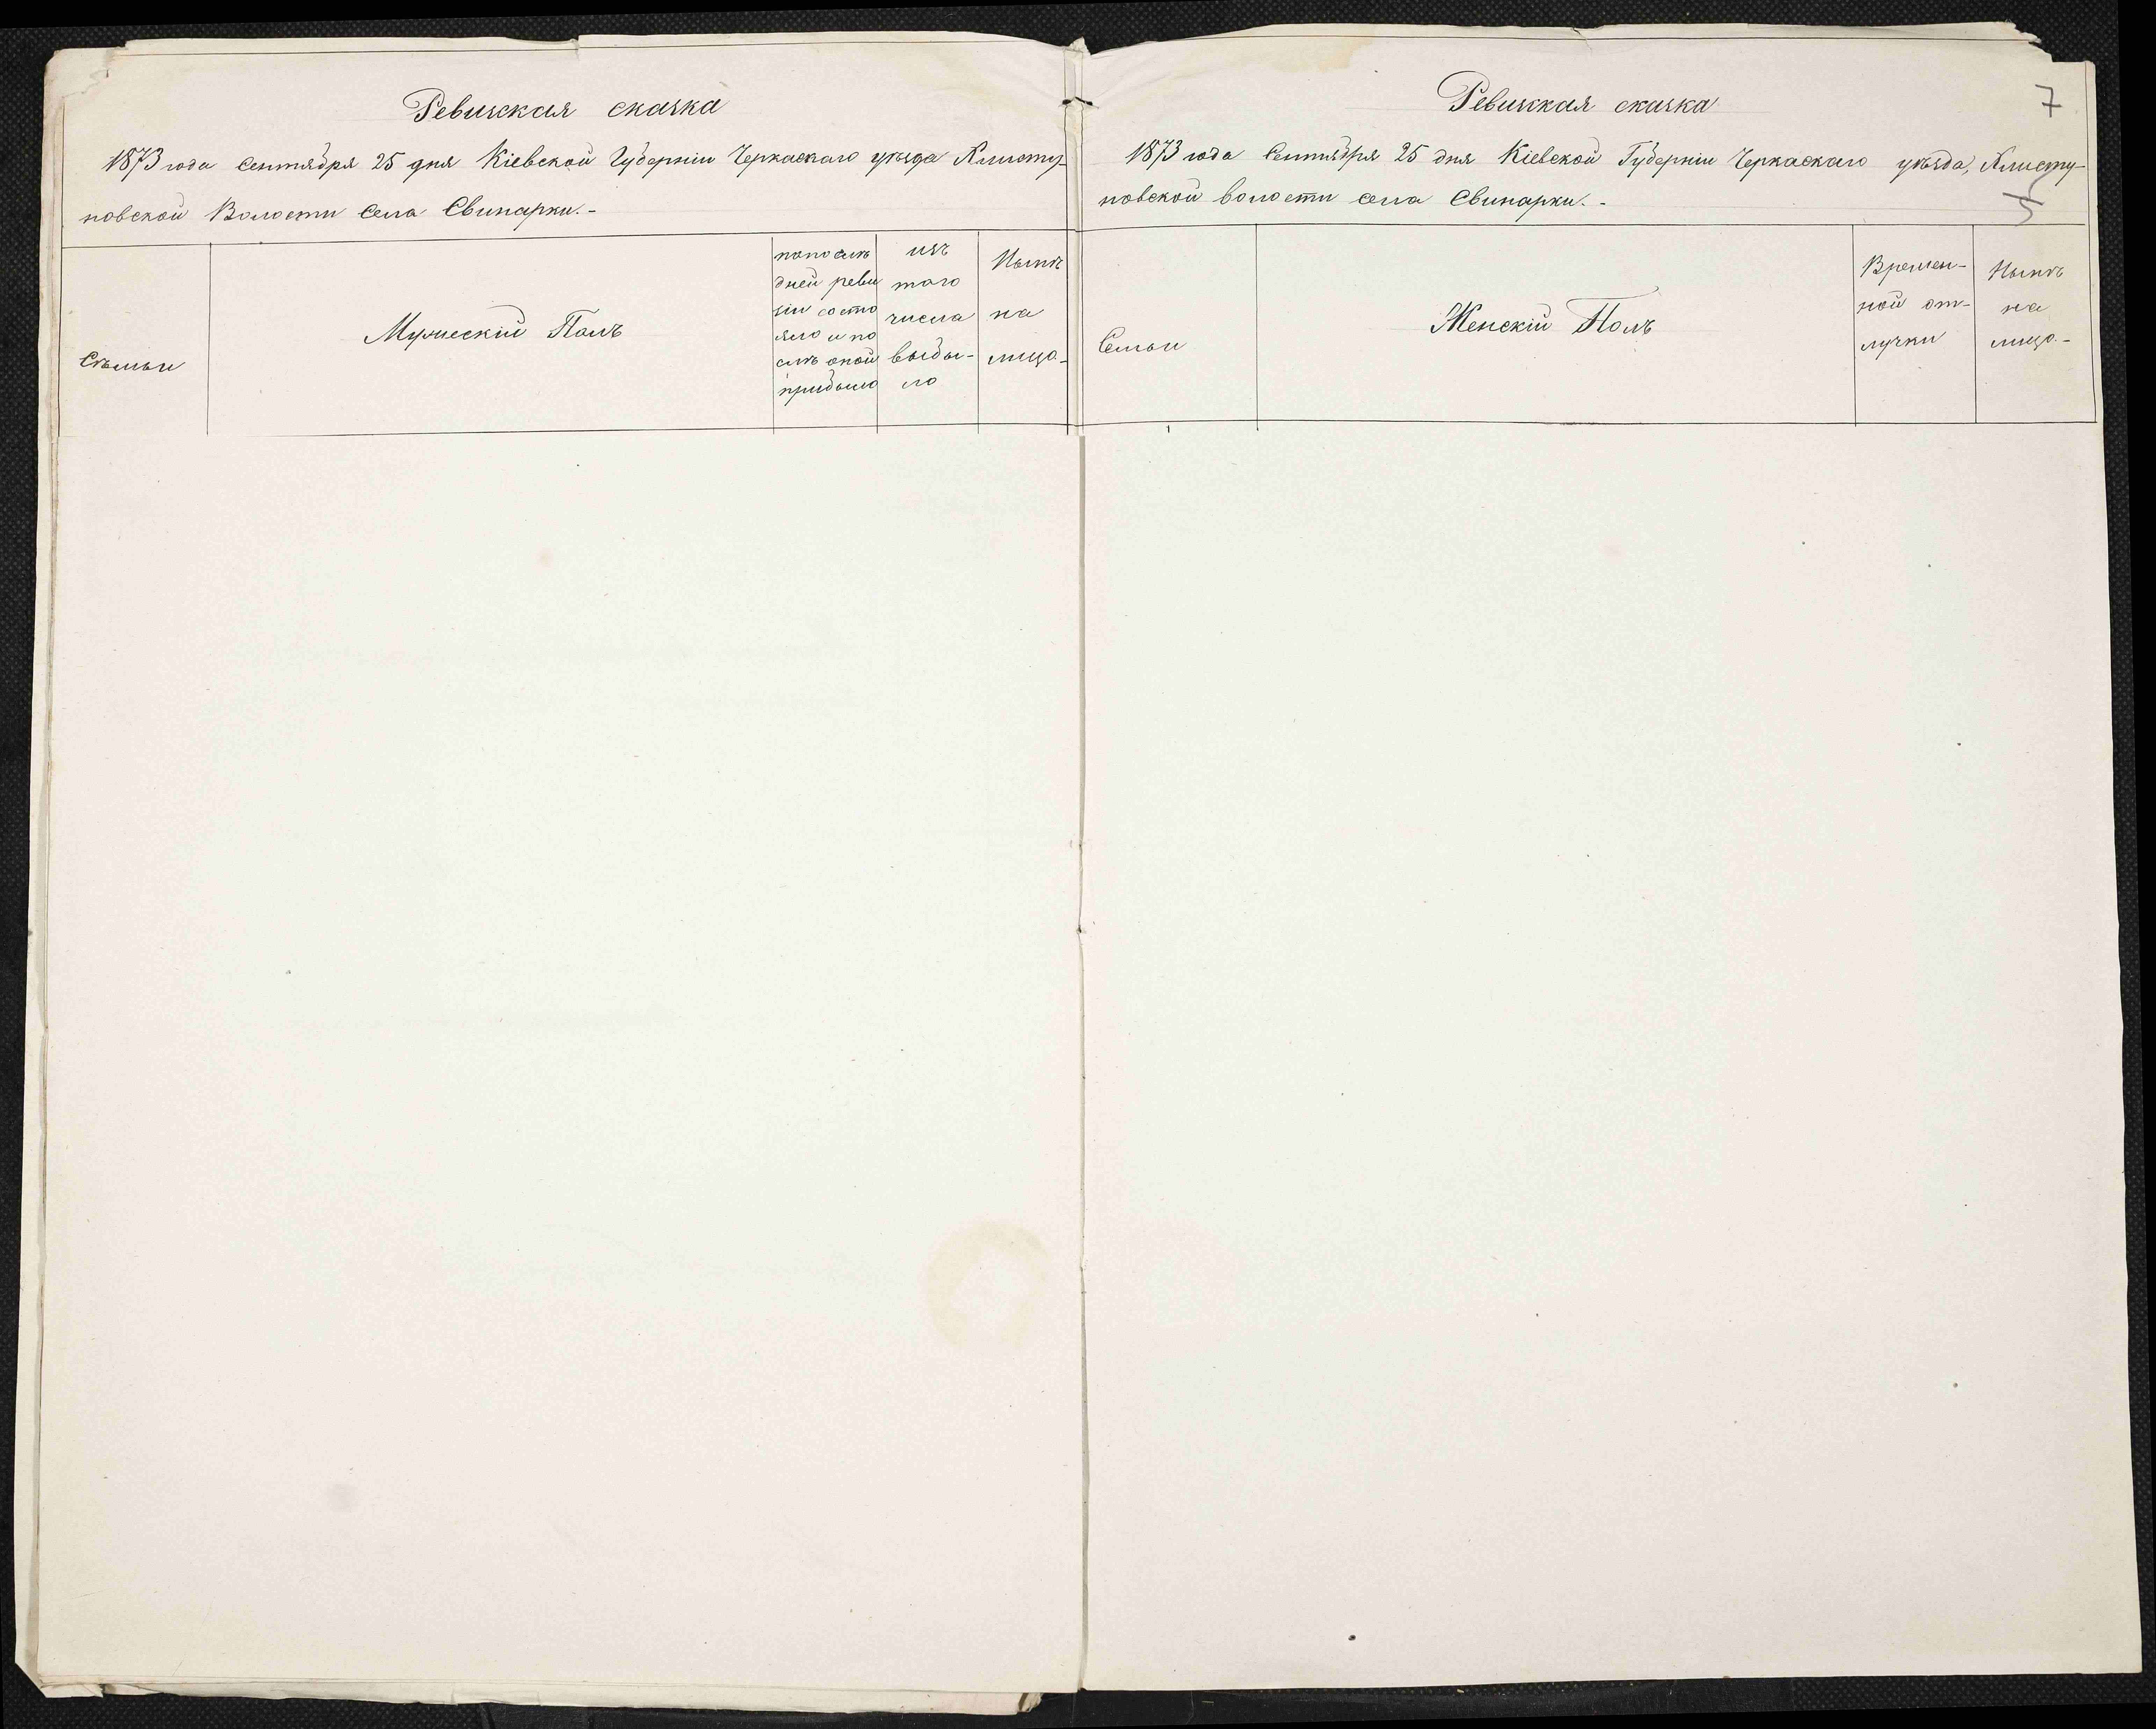 Ревизская сказка
1873 года Сентября 25 дня Кіевской Губерніи Черкаскаго уѣзда Клисту-
новской Волости Села Свинарки.-
Сѣмьи
Мужескій Полъ
по послѣ
дней реви
зіи состо
яло и по
слѣ оной
прибыло
изъ
того
числа
выбы-
ло
Нынѣ
на
лицо-
Ревизская сказка
7
1873 года Сентября 25 дня Кіевской Губерніи Черкаскаго уѣзда, Клисту-
новской волости села Свинарки.-
5
Семьи
Женскій Полъ
Времен-
ной от-
лучки
Нынѣ
на
лицо-